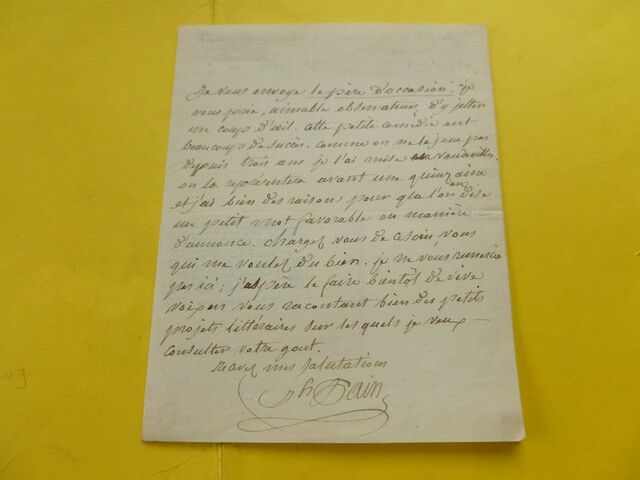 Je vous envoye le père d'occasion, je
vous prie, aimable observateur, d'y jetter
un coup d'œil. cette petite comédie eut
beaucoup de succès. comme on ne la joue pas
depuis trois ans je l'ai mise en vaudevilles.
on la représentera avant une quinzaine
et j'ai bien des raison pour que l'on en dise
un petit mot favorable en manière
d'annonce. chargez vous de ce soin vous
qui me voulez du bien. je ne vous remercie
pas ici; j'aspère le faire bientôt de vive
voix en vous racontant bien des petits
projets littéraires sur les quels je veux
consulter votre gout.
recevez mes salutations
Pain